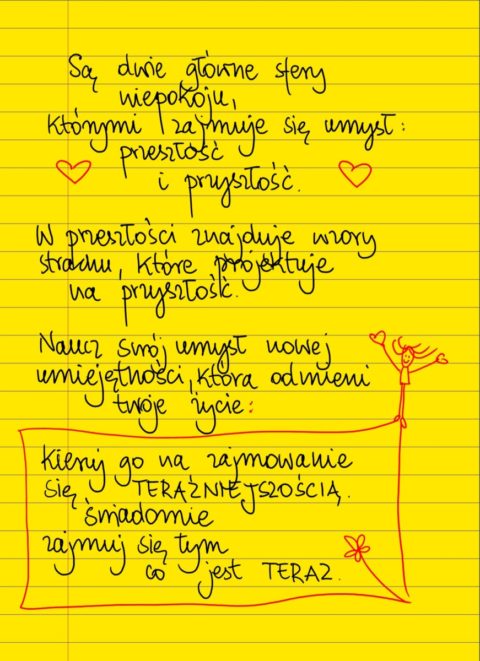 Są dwie główne sfery
niepokoju,
którymi zajmuje się umysł:
przeszłość
i przyszłość.
W przeszłości znajduje wzory
strachu, które projektuje
na przyszłość.
Naucz swój umysł nowej
umiejętności, która odmieni
twoje życie:
Kieruj go na zajmowanie
się TERAŹNIEJSZOŚCIĄ.
Świadomie
zajmuj się tym
co jest TERAZ.